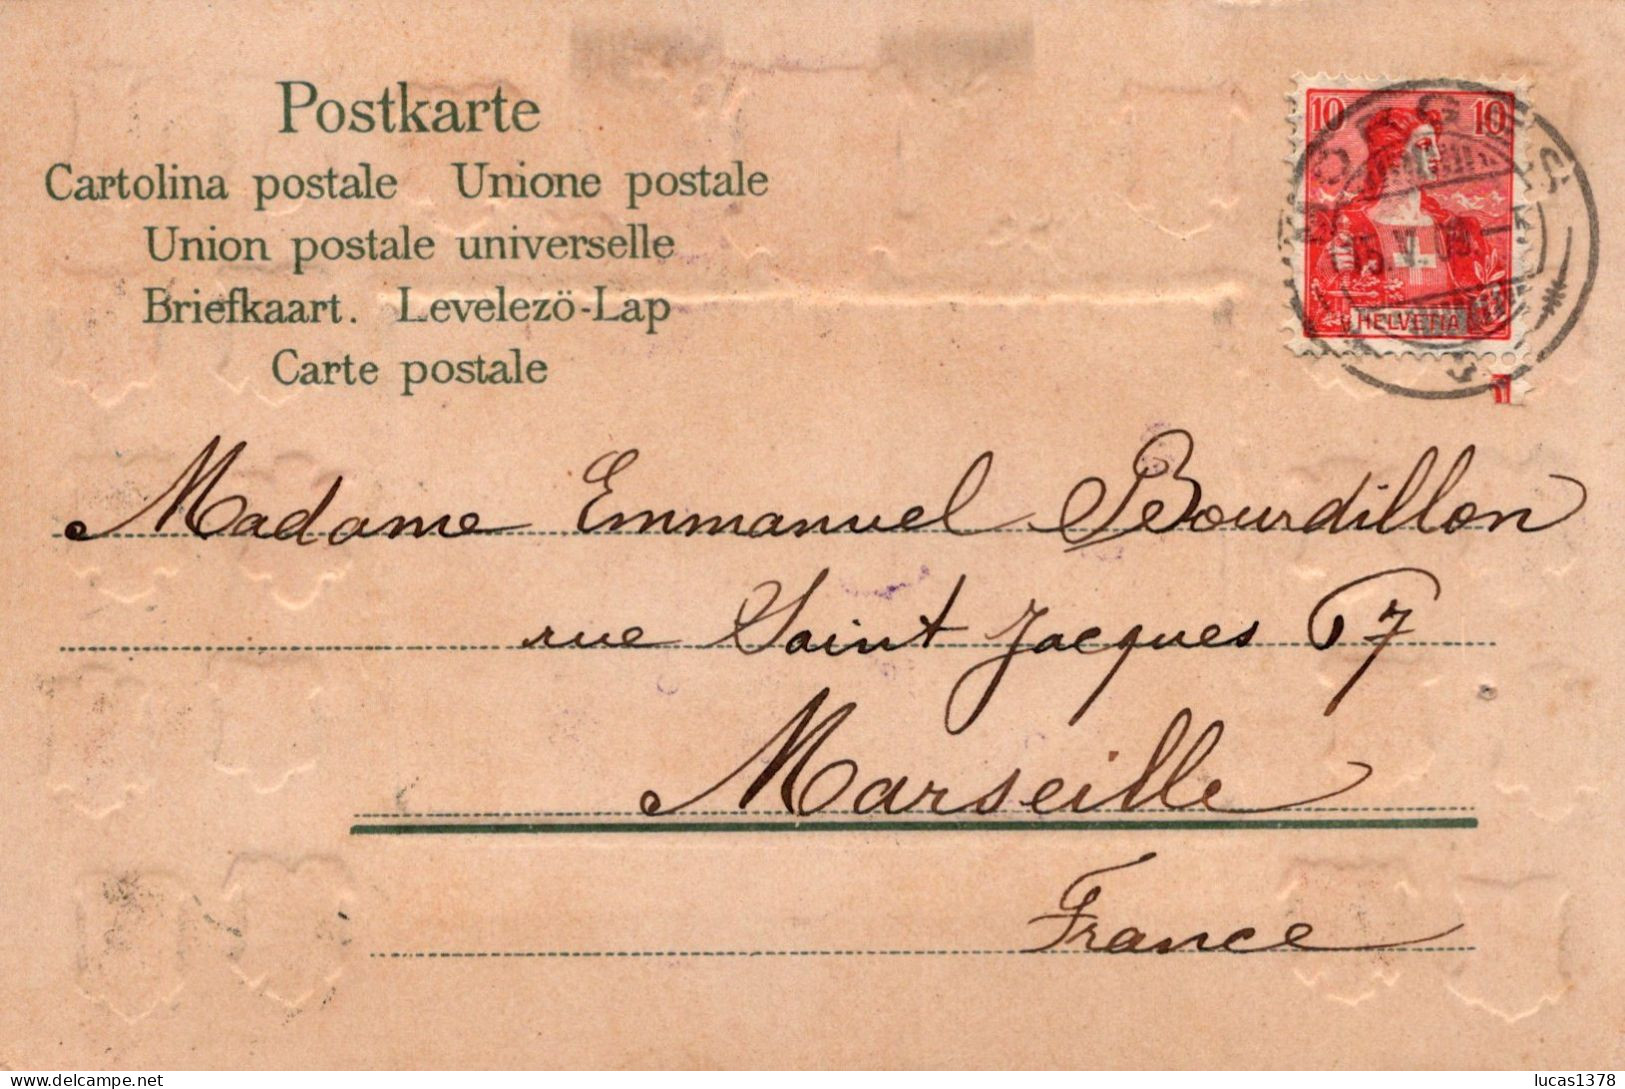 Postkarte
Cartolina postale Unione postale
Union postale universelle
Briefkaart. Levelezö-Lap
Carte postale
10 10
MORGES
HELVETIA
Madame Emmanuel Bourdillon
rue Saint Jacques 67
Marseille
France
lucas1378